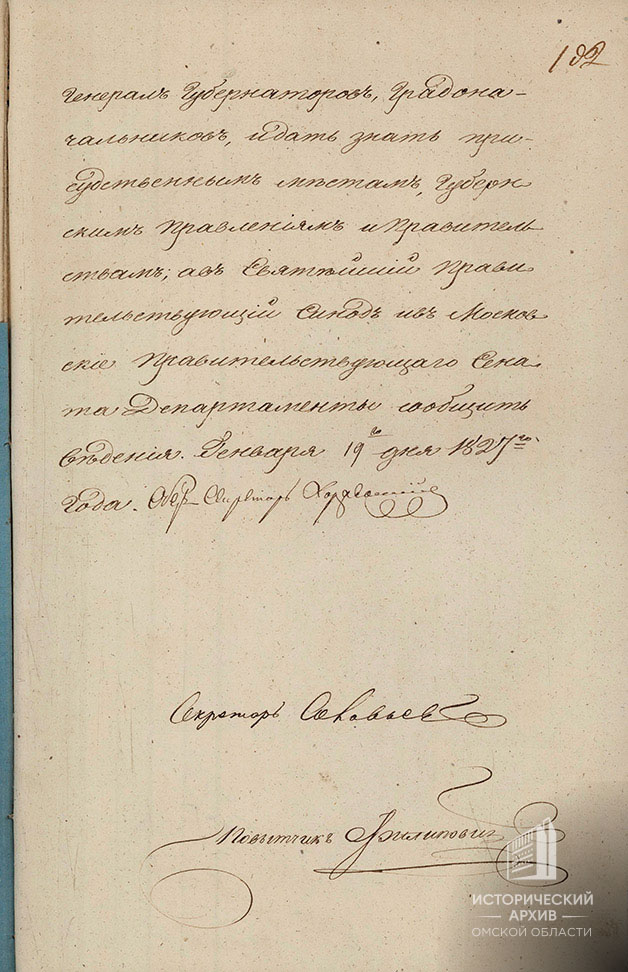 182
Генералъ Губернаторовъ, Градона-
чальниковъ, и дать знать при-
судственнымъ мѣстамъ, Губерн
скимъ Правленіямъ и Правитель
ствамъ; а въ Святѣйшій Прави
тельствующій Синодъ и въ Москов
скіе Правительствующаго Сена
та Департаменты сообщить
вѣденія. Генваря 19го дня 1827го
года. Обер-Секретарь
Секретарь Соловьевъ
Повытчикъ Филиповичъ
ИСТОРИЧЕСКИЙ
АРХИВ
ОМСКОЙ ОБЛАСТИ